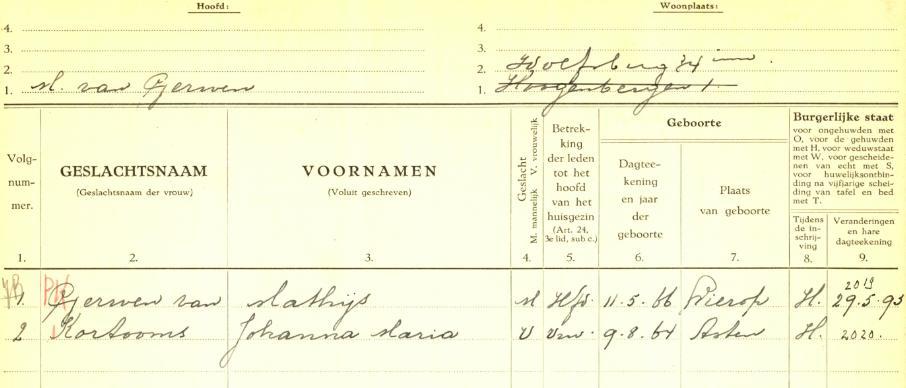 Hoofd: Woonplaats:
4. 4.
3. 3.
2. 2. Wolfsberg
1. M. van Gerwen 1. Hoogenbergen 1.
Volg-
num-
mer.
GESLACHTSNAAM
(Geslachtsnaam der vrouw)
VOORNAMEN
(Voluit geschreven)
Geslacht
M. mannelijk V. vrouwelijk
Betrek-
king
der leden
tot het
hoofd
van het
huisgezin
(Art. 24,
3e lid, sub c.)
Geboorte
Dagtee-
kening
en jaar
der
geboorte
Plaats
van geboorte
Burgerlijke staat
voor ongehuwden met
O, voor de gehuwden
met H, voor weduwstaat
met W, voor gescheide-
nen van echt met S,
voor huwelijksontbin-
ding na vijfjarige schei-
ding van tafel en bed
met T.
Tijdens
de in-
schrij-
ving
Veranderingen
en hare
dagteekening
1. 2. 3. 4. 5. 6. 7. 8. 9.
2019
1 Gerwen van Mathijs M Hfd. 11.5.66 Lierop H. 29.5.93
2 Kortooms Johanna Maria V Vrw. 9.8.64 Asten H. 2020.